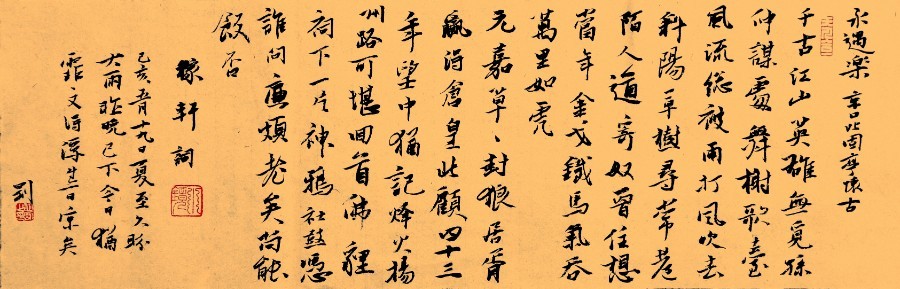 永遇樂 京口北固亭懷古
千古江山英雄無覓孫
仲謀處舞榭歌臺
風流總被雨打風吹去
斜陽草樹尋常巷
陌人道寄奴曾住想
當年金戈鐵馬氣吞
萬里如虎
元嘉草〻封狼居胥
贏得倉皇北顧四十三
年望中猶記烽火揚
州路可堪回首佛貍
祠下一片神鴉社鼓憑
誰問廉頗老矣尚能
飯否
稼軒詞
己亥五月十九日夏至久盼
大雨昨晚已下今日猶
霏
劉